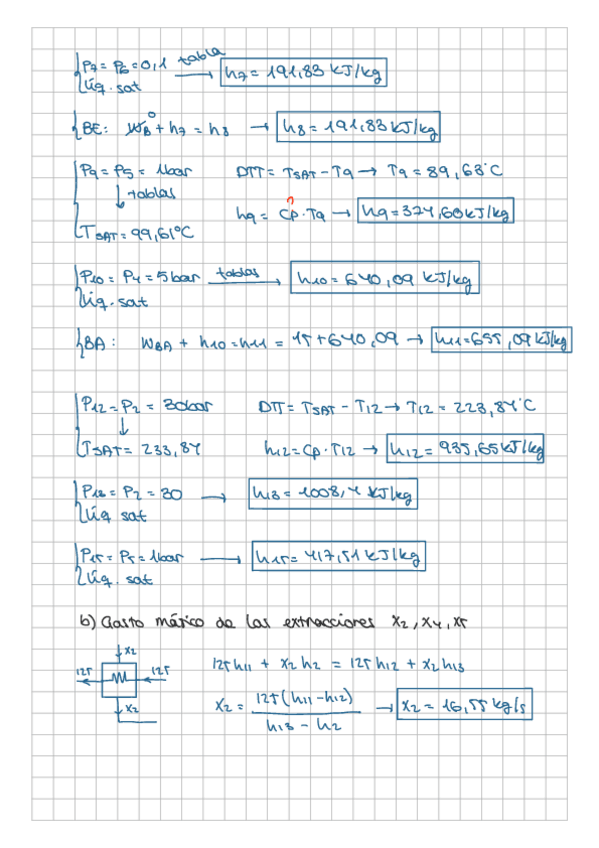 P7 = P6 = 0,1 tabla → h7 = 191,83 kJ/kg
Líq. sat
BE: WB + h7 = h8 → h8 = 191,83 kJ/kg
0
P9 = P5 = 1bar DTT = TSAT - T9 → T9 = 89,63°C
↓ tablas
h9 = Cp · T9 → h9 = 374,60 kJ/kg
?
TSAT = 99,61°C
P10 = P4 = 5bar tablas → h10 = 640,09 kJ/kg
Líq. sat
BA: WBA + h10 = h11 = 15 + 640,09 → h11 = 655,09 kJ/kg
P12 = P2 = 30bar DTT = TSAT - T12 → T12 = 223,84°C
↓
TSAT = 233,84 h12 = Cp · T12 → h12 = 935,65 kJ/kg
P13 = P2 = 30 → h13 = 1008,4 kJ/kg
Líq sat
P15 = P5 = 1bar → h15 = 417,51 kJ/kg
Líq. sat
b) Gasto másico de las extracciones X2, X4, X5
X2
125 125 125h11 + X2h2 = 125h12 + X2h13
X2 X2 = 125(h11 - h12) / h13 - h2 → X2 = 16,55 kg/s